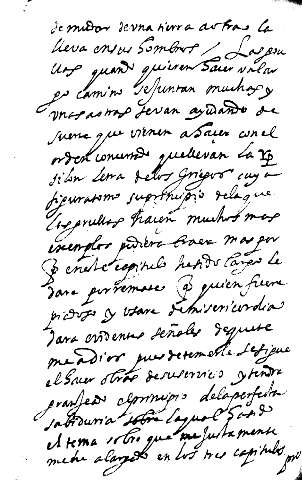 de mudar de vna tierra a otra o la
lleva en sus hombros / Las gru
llas quando quieren haser un lar
go camino se juntan muchas y
vnas a otras se van ayudando de
suerte que vienen a haser con el
orden concierto que llevan la yp
silon letra de los griegos cuya
figura tomo su principio de la que
las grullas hasen muchos mas
exemplos pudiera traer mas por
q en este capitulo he sido largo le
dara por remate q quien fuere
piadoso y usare de misericordia
dara evidentes señales de que te
me a Dios pues de temerle se sigue
el haser obras de su servicio y tendra
grangeado el principio de la perfecta
sabiduria sobre la qual
el tema sobre que me justamente
me he alargado en los tres capitulos